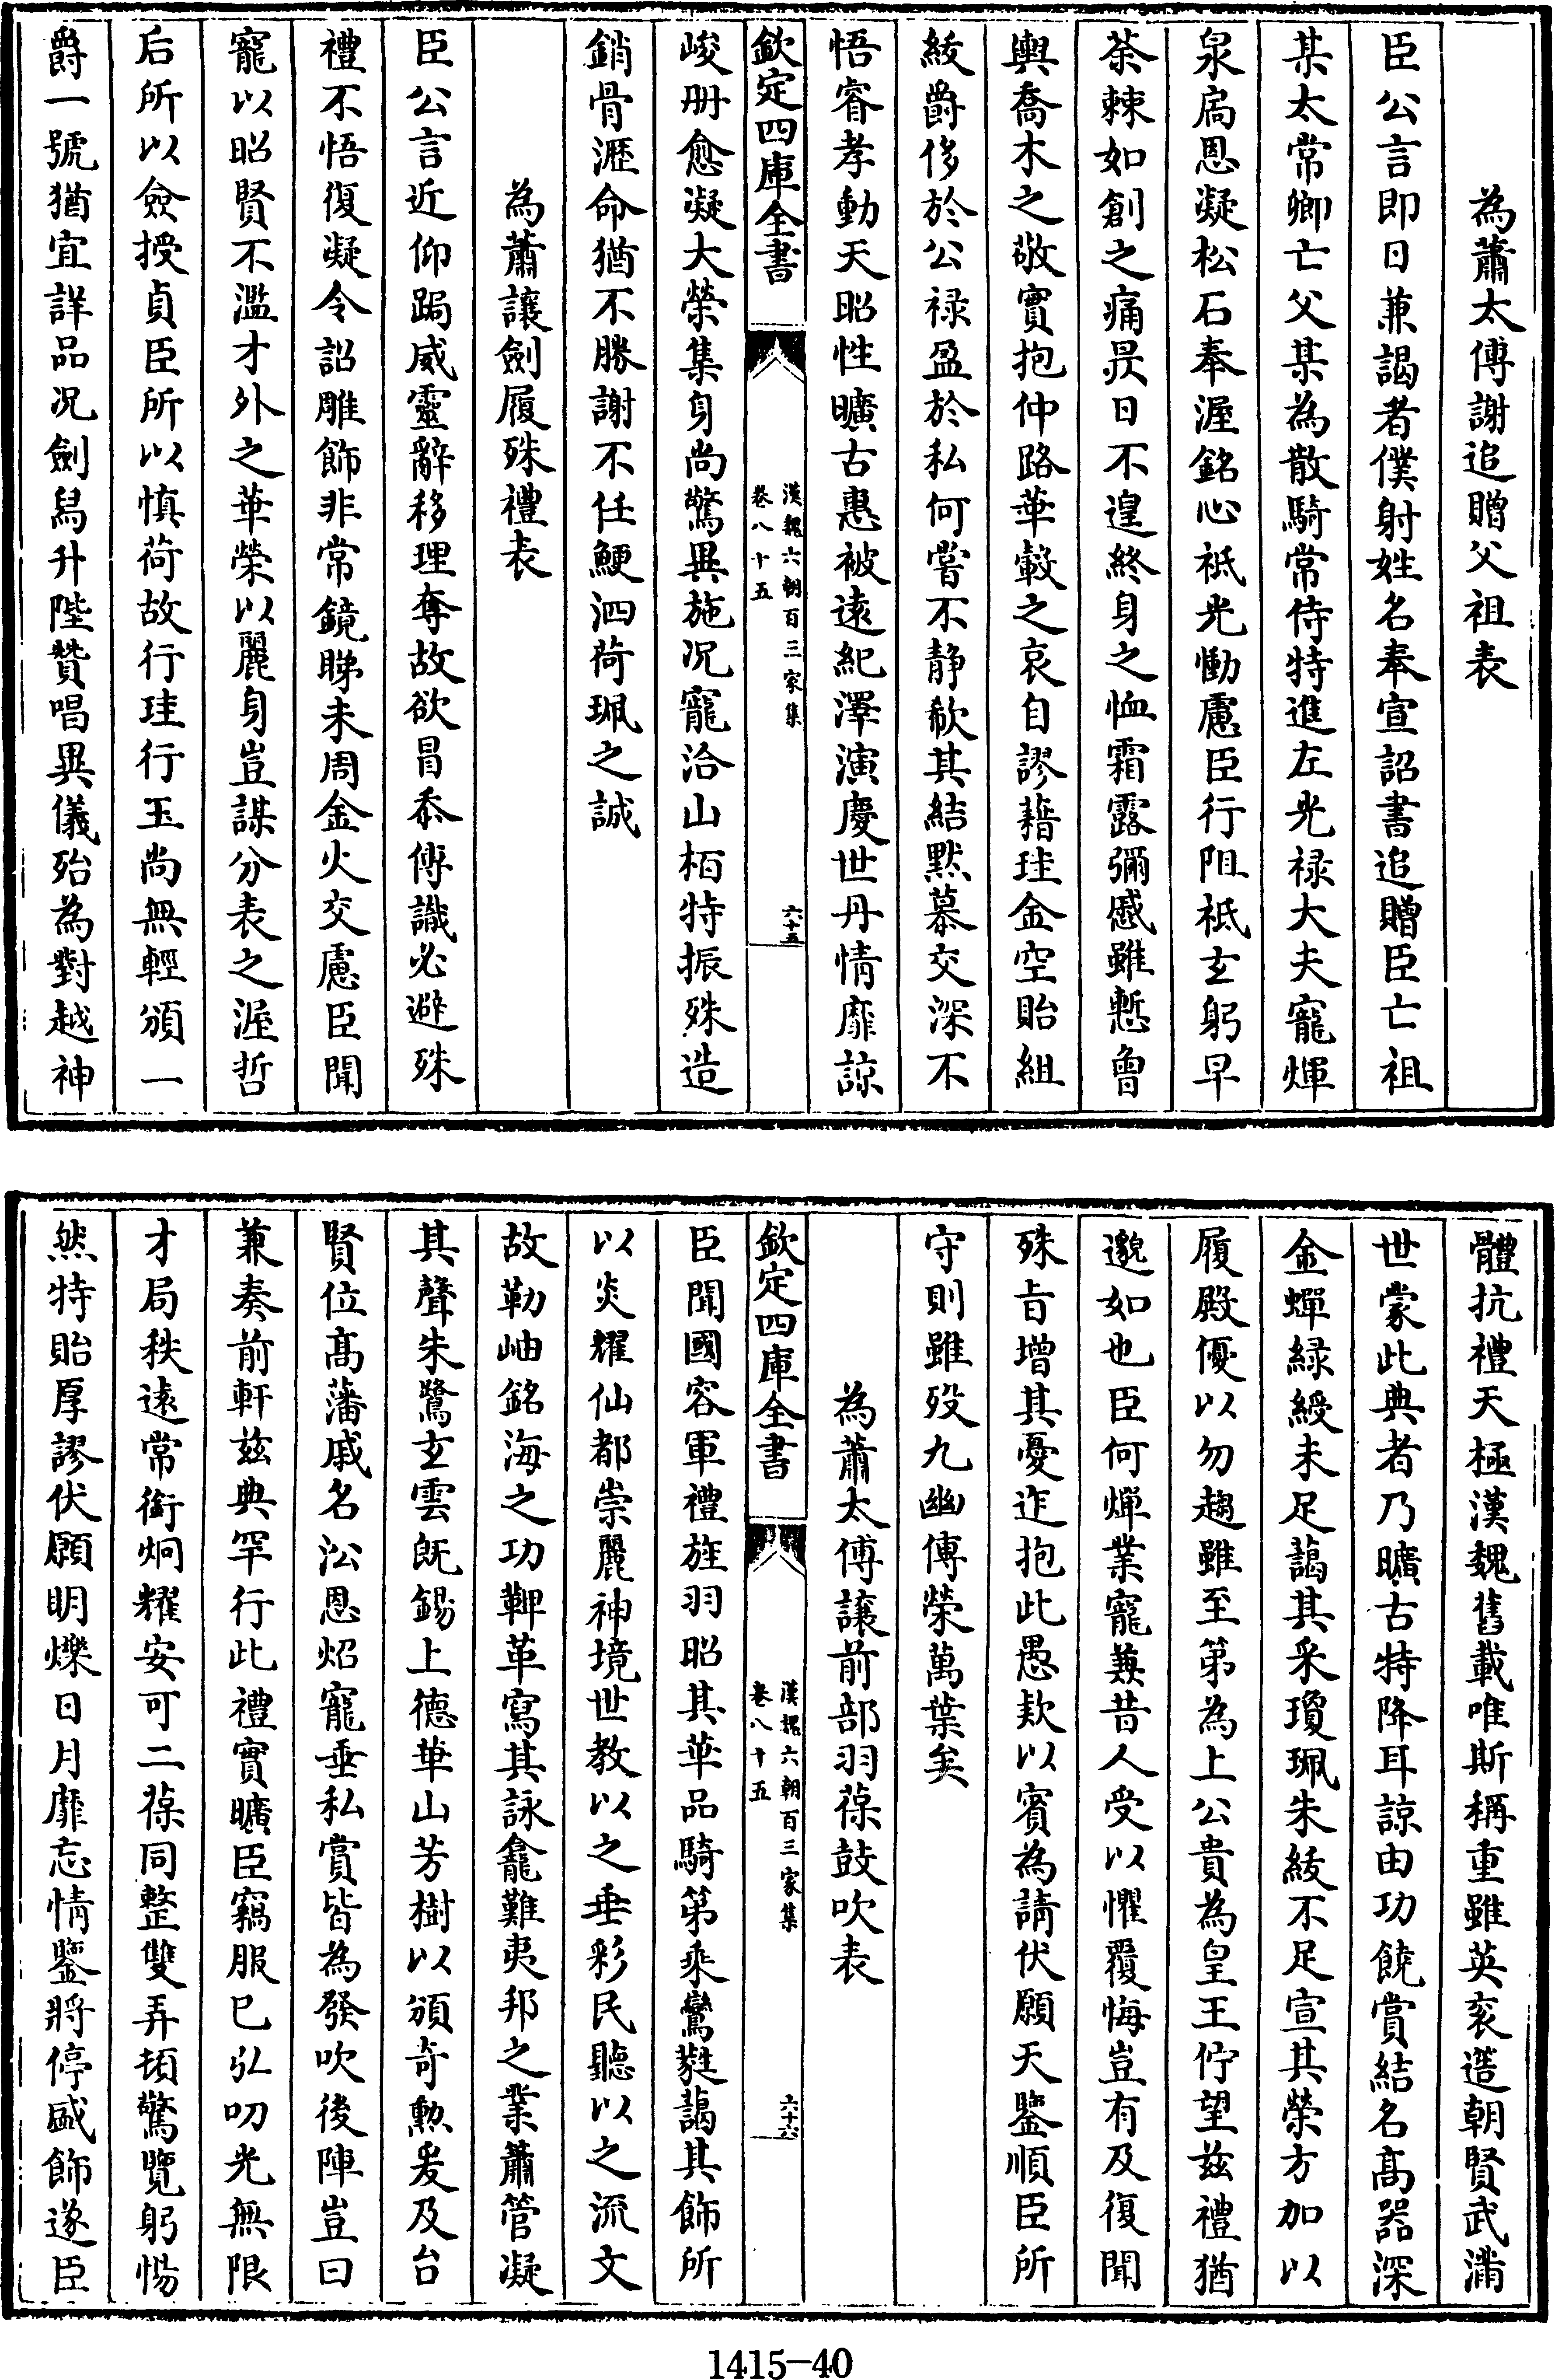 為蕭太傅謝追贈父祖表
臣公言即日兼謁者僕射姓名奉宣詔書追贈臣亡祖
某太常卿亡父某為散騎常侍特進左光禄大夫寵煇
泉扃恩凝松石奉渥銘心祗光慟慮臣行阻祗玄躬早
荼棘如創之痛昃日不遑終身之恤霜露彌慼雖慙曾
輿喬木之敬實抱仲路華轂之哀自謬藉珪金空貽組
紱爵侈於公禄盈於私何嘗不静欷其結黙慕交深不
悟睿孝動天昭性曠古惠被逺紀澤演慶世丹情靡諒
欽定四庫全書
漢魏六朝百三家集
卷八十五
六十五
峻册愈凝大榮集身尚驚異施况寵洽山栢特振殊造
銷骨瀝命猶不勝謝不任鯁泗荷珮之誠
為蕭讓劍履殊禮表
臣公言近仰跼威靈辭移理奪故欲冒忝傳識必避殊
禮不悟復凝令詔雕飾非常鏡睇未周金火交慮臣聞
寵以昭賢不濫才外之華榮以麗身豈謀分表之渥哲
后所以僉授貞臣所以慎荷故行珪行玉尚無輕頒一
爵一號猶宜詳品况劍舄升陛贊唱異儀殆為對越神
體抗禮天極漢魏舊載唯斯稱重雖英衮簉朝賢武滿
世蒙此典者乃曠古特降耳諒由功饒賞結名髙器深
金蟬緑綬未足藹其采瓊珮朱紱不足宣其榮方加以
履殿優以勿趨雖至第為上公貴為皇王佇望兹禮猶
邈如也臣何燀業寵兼昔人受以懼覆悔豈有及復聞
殊㫖增其憂迮抱此愚欵以賓為請伏願天鑒順臣所
守則雖殁九幽傳榮萬葉矣
為蕭太傅讓前部羽葆鼓吹表
欽定四庫全書
漢魏六朝百三家集
卷八十五
六十六
臣聞國容軍禮旌羽昭其華品騎第乘鸞蕤藹其飾所
以炎耀仙都崇麗神境世教以之垂彩民聽以之流文
故勒岫銘海之功鞞革寫其詠龕難夷邦之業簫管凝
其聲朱鷺玄雲既錫上德華山芳樹以頒奇勲爰及台
賢位髙藩戚名㳂恩炤寵垂私賞皆為發吹後陣豈曰
兼奏前軒兹典罕行此禮實曠臣竊服已弘叨光無限
才局秩逺常銜炯耀安可二葆同整雙弄頓驚覽躬惕
然特貽厚謬伏願明爍日月靡忘情鑒將停盛飾遂臣
1415-40